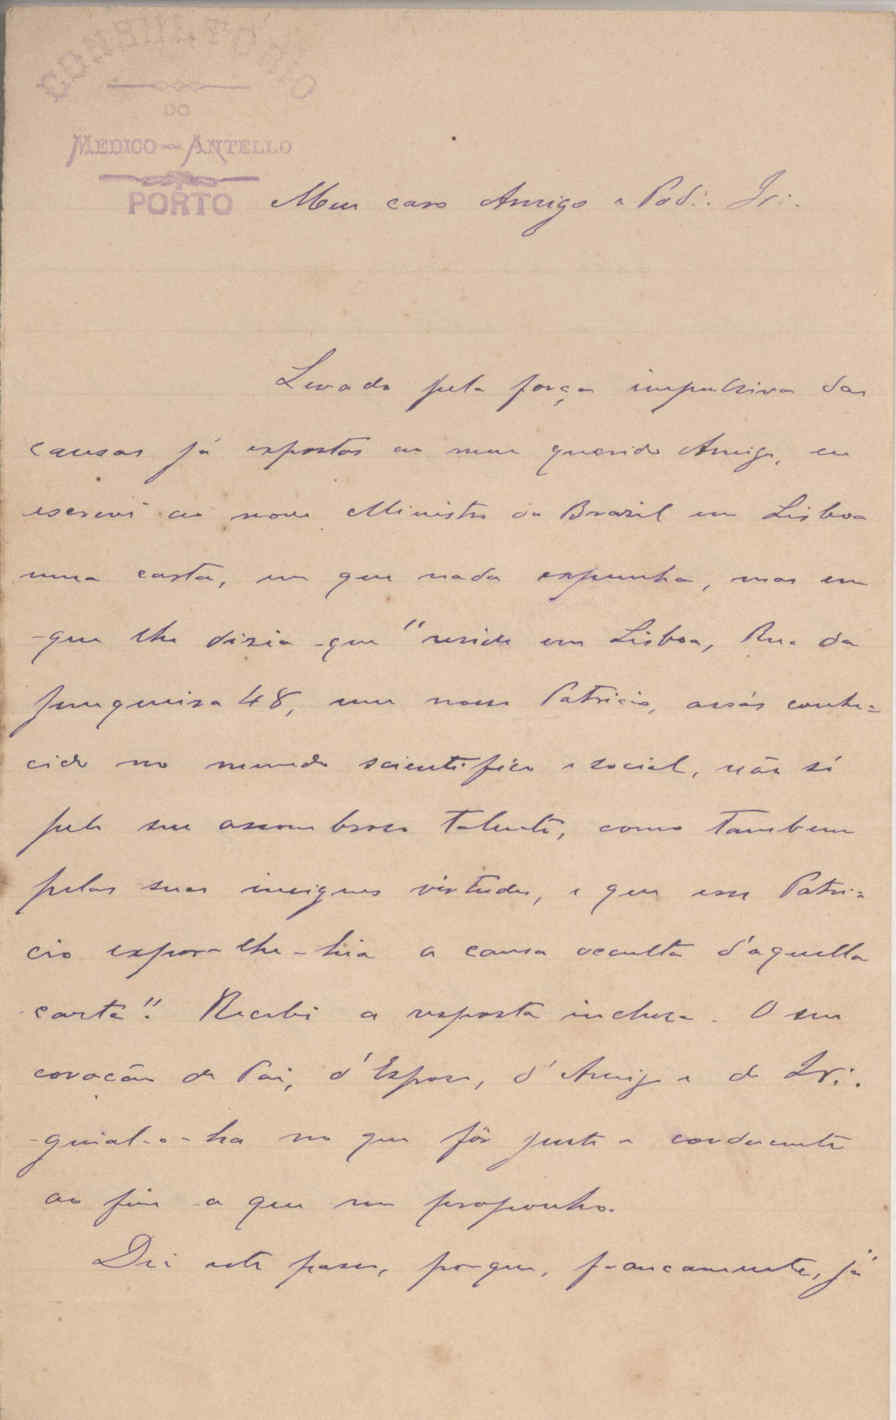 CONSULTORIO
DO
MEDICO - ANTELLO
PORTO
Meu caro Amigo e Pod∴ Ir∴
Levado pela força impulsiva das
causas já expostas ao meu querido Amigo, eu
escrevi ao novo Ministro do Brazil em Lisboa
uma carta, em que nada expunha, mas em
que lhe dizia que "reside em Lisboa, Rua da
Junqueira 48, um nosso Patricio, assás conhe=
cido no mundo scientifico e social, não só
pelo seu assombroso talento, como tambem
pelas suas insignes virtudes, e que esse Patri=
cio expor-lhe-hia a causa occulta d'aquella
carta". Recebi a resposta inclusa. O seu
coração de Pai, d'Esposo, d'Amigo e de Ir∴
guial-o-ha no que fôr justo e conducente
ao fim a que me proponho.
Dei este passo, porque, francamente, já